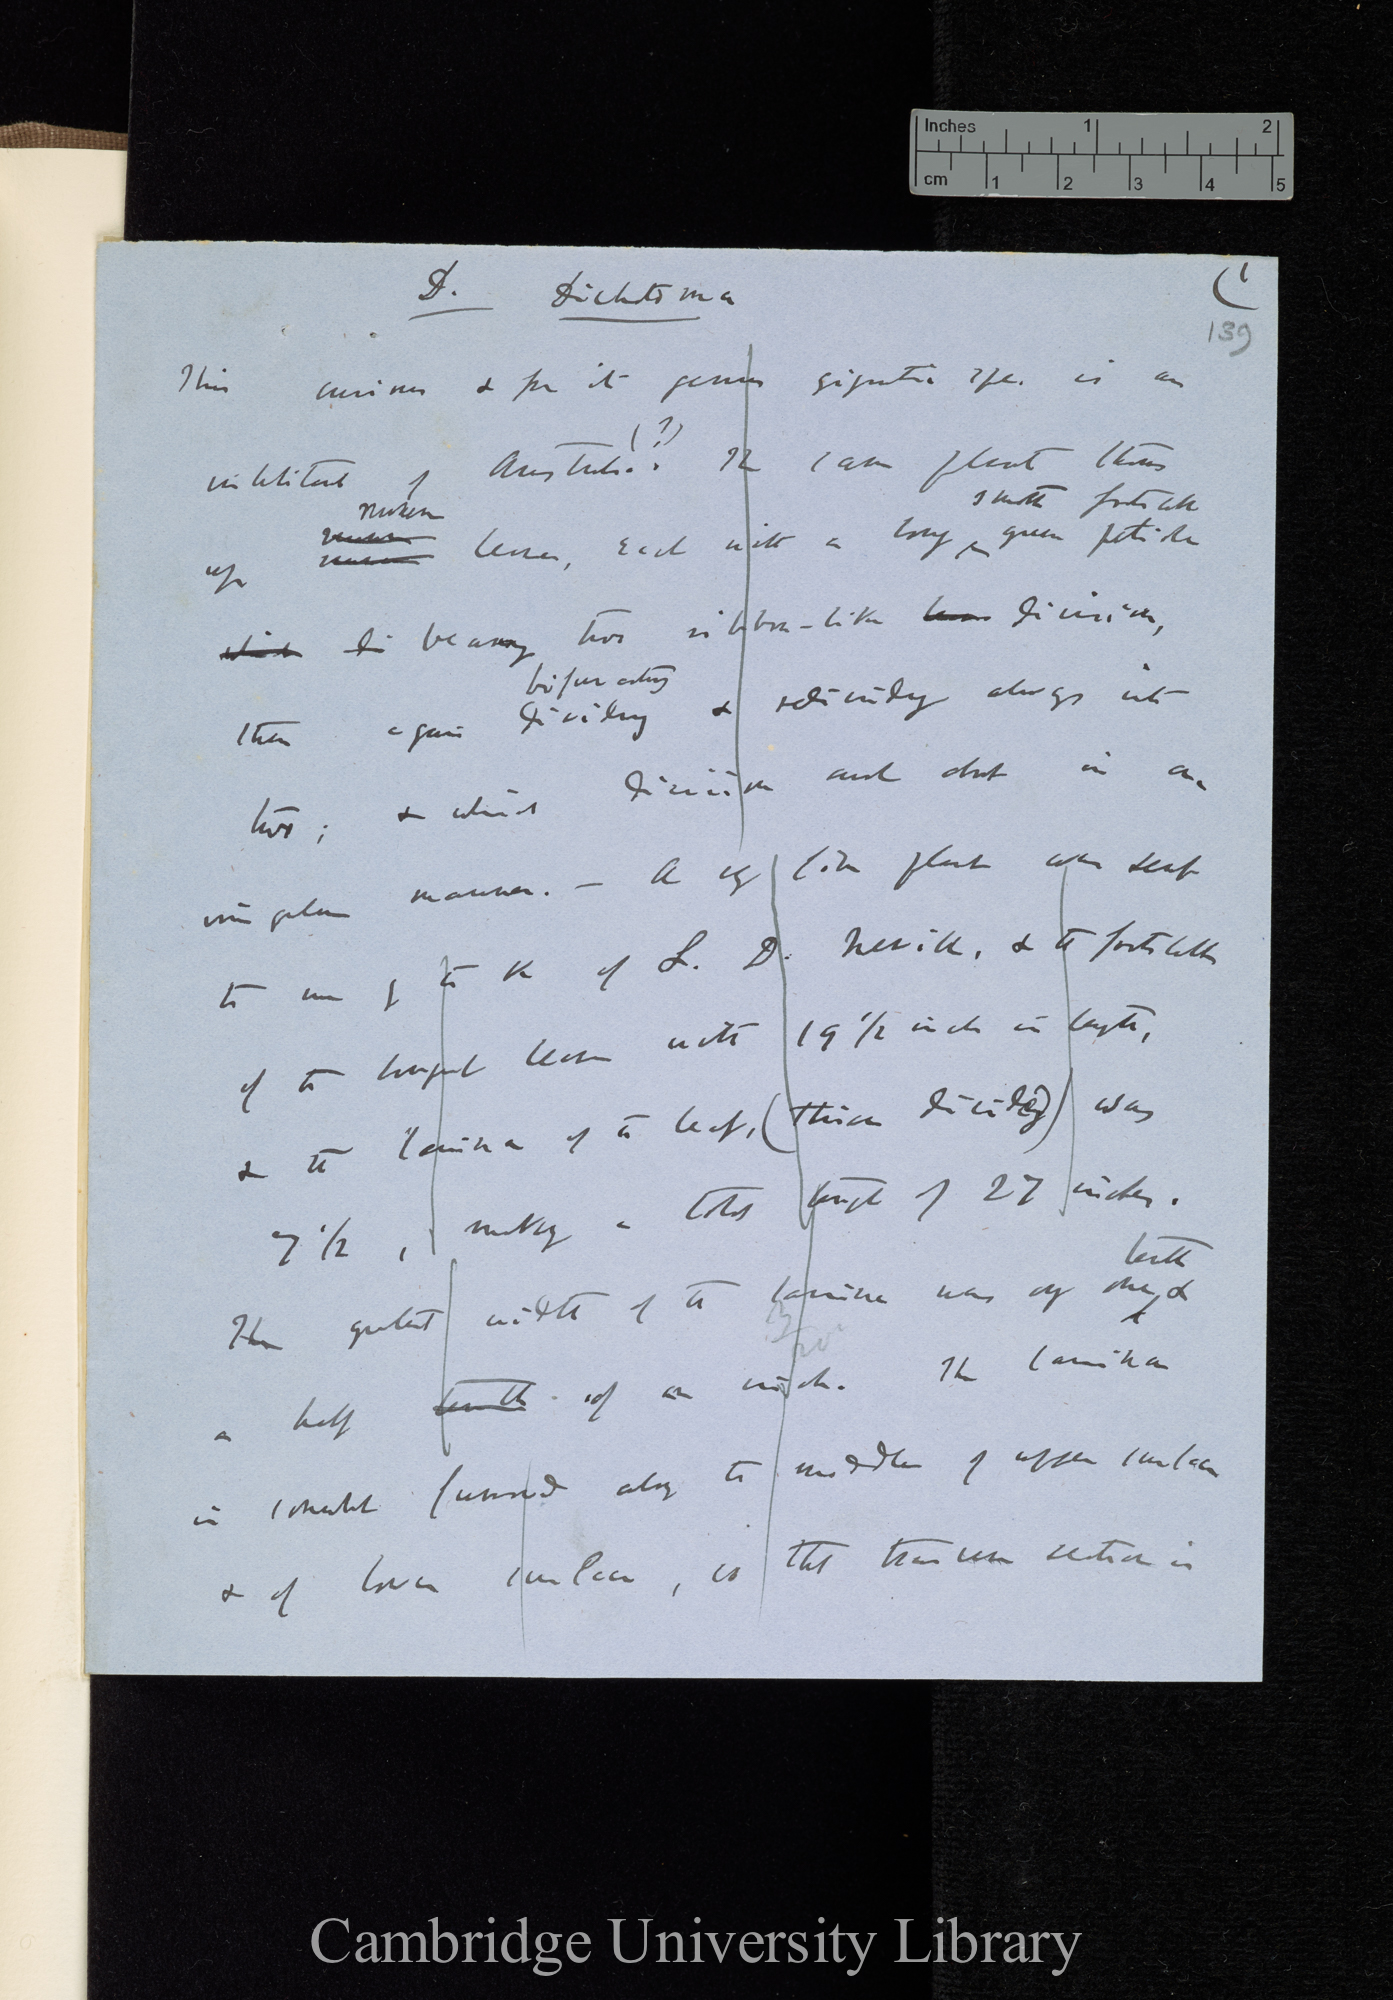 Inches 1 2
cm 1 2 3 4 5
(1
139
D. Dichotoma
This curious & for its genus gigantic spe. is an
inhabitant of Australia (?). The same plant throws
up leaves, each with a long smooth footstalk green petiole
which di bearing two ribbon-like divisions,
then again bifurcating dividing & redividing always into
two; & which division and in an
manner. — A fine plant was sent
to me of L. D. Nevill, & the footstalk
of the longest leaves with 19 1/2 inch in length,
& the lamina of the leaf, (thrice divided) was
7 1/2, making a total length of 27 inches.
The greatest width of the lamina was only one tenth &
a half tenth of an inch. The lamina
is somewhat furrowed along the middle of upper surface
& of lower surface, so that transverse section is
Cambridge University Library